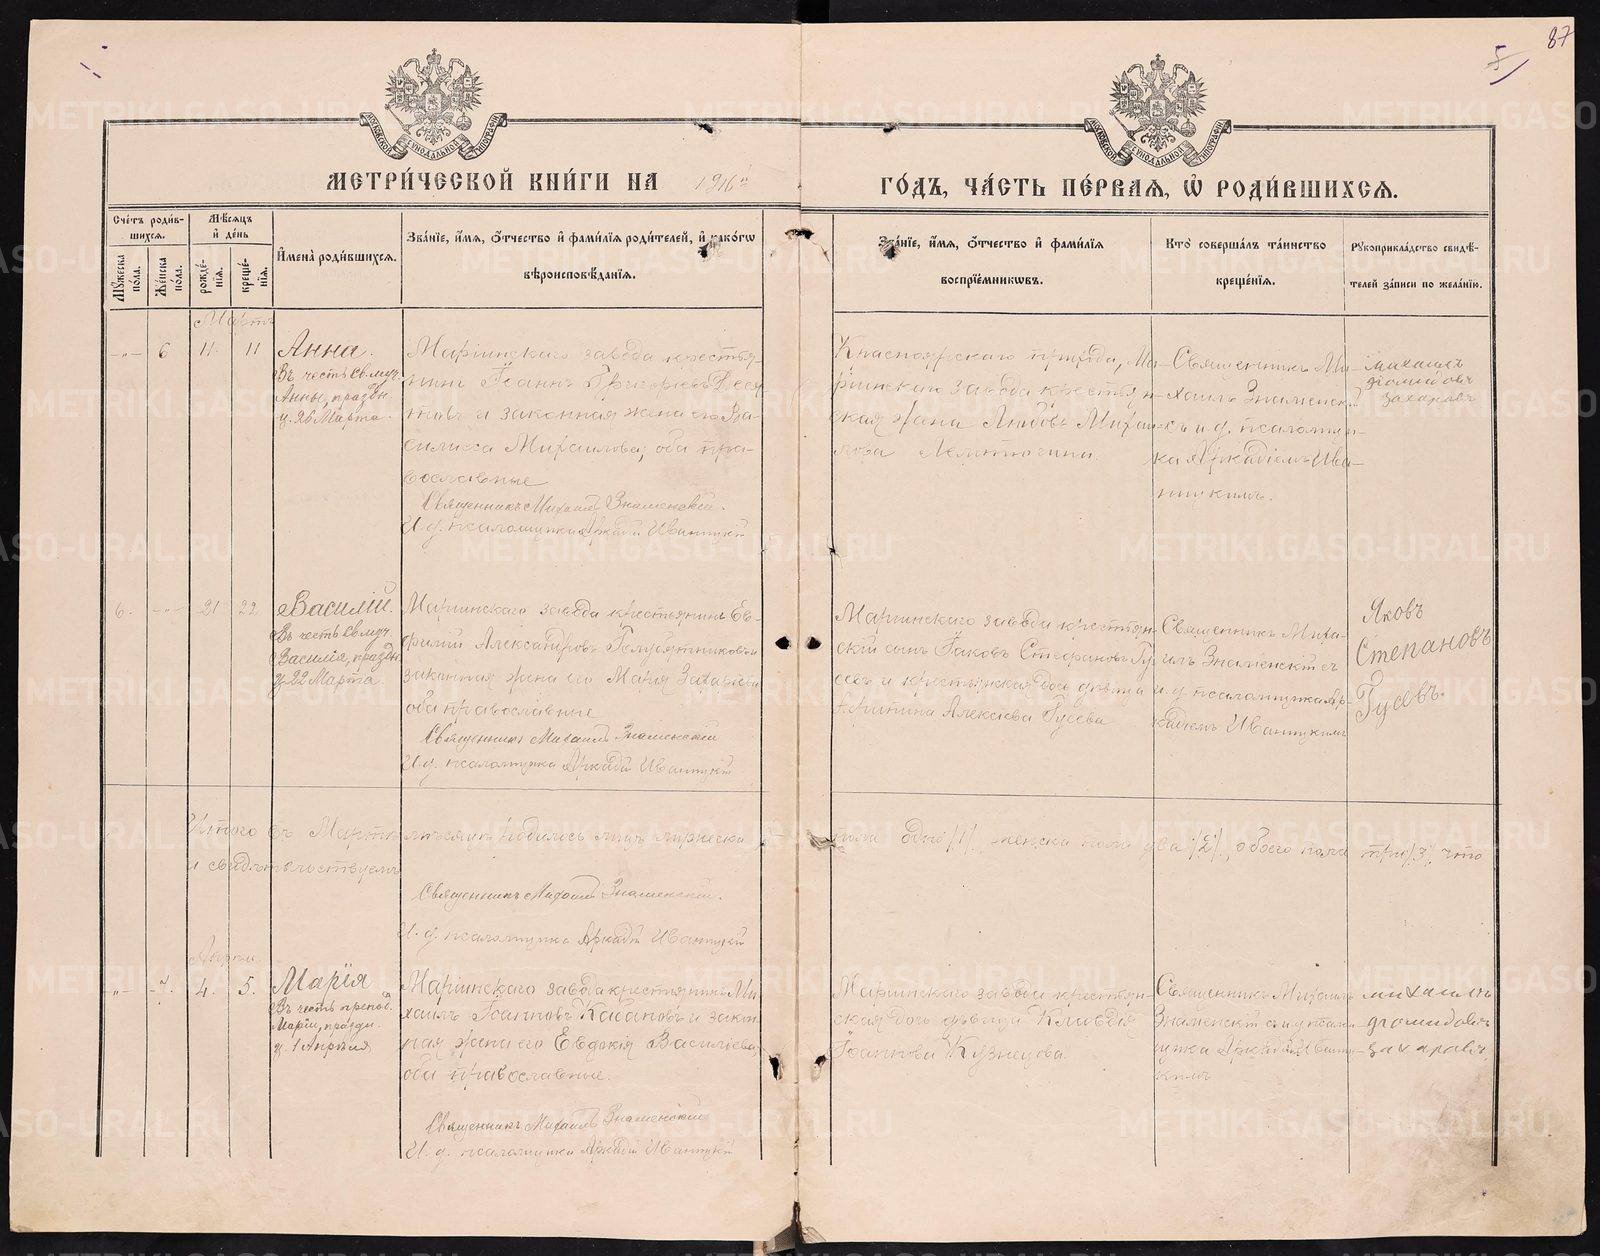 87
5
МОСКОВСКОЙ СѴНОДАЛЬНОЙ ТИПОГРАФІИ
МОСКОВСКОЙ СѴНОДАЛЬНОЙ ТИПОГРАФІИ
МЕТРИ́ЧЕСКОЙ КНИ́ГИ НА 1916й ГО́ДЪ, ЧА́СТЬ ПЕ́РВАЯ, Ѿ РОДИ́ВШИХСЯ.
Сче́тъ роди́в-
шихся.
Мѣ́сяцъ
и҆ де́нь
И҆мена̀ роди́вшихся.
Зва́нїе, и҆́мя, о҆́тчество и҆ фами́лїя роди́телей, и҆ како́гѡ
вѣроисповѣ́данїя.
Зва́нїе, и҆́мя, о҆́тчество и҆ фами́лїя
воспрїе́мникѡвъ.
Кто̀ соверша́лъ та́инство
креще́нїя.
Рꙋкоприкла́дство свидѣ́-
телей за́писи по жела́нїю.
Мꙋ́жеска
по́ла.
Же́нска
по́ла.
рожде́-
нїя.
креще́-
нїя.
Мартъ
-"- 6 11. 11
Анна.
Въ честь св. муч.
Анны, праздн.
д. 26 Марта.
Маріинскаго завода крестья-
нинъ Іоаннъ Григорьевъ Деся
товъ и законная жена его Ва-
силисса Михаилова, оба пра-
вославные
Священникъ Михаилъ Знаменскій.
И. д. псаломщика Аркадій Ивантукій
Красноярскаго прихода, Ма-
ріинскаго завода крестьян-
ская жена Любовь Михаи-
лова
Священникъ Ми-
хаилъ Знаменск.
съ и. д. псаломщи-
ка Аркадіемъ Ива-
нтукимъ.
михаилъ
диомидовъ
захаровъ
6. -"- 21 22
Василій.
Въ честь св. муч.
Василія, праздн.
д. 22 Марта.
Маріинскаго завода крестьянинъ Ев-
фимій Александровъ Голубятниковъ и
законная жена его Марія Захаріева
оба православные
Священникъ Михаилъ Знаменскій
И. д. псаломщика Аркадій Ивантукій
Маріинскаго завода крестьян-
скій сынъ Іаковъ Стефановъ Гу-
севъ и крестьянская дочь дѣвица
Алексіева Гусева
Священникъ Миха-
илъ Знаменскій съ
и. д. псаломщика Ар-
кадіемъ Ивантукимъ
Яковъ
Степановъ
Гусевъ
Итого въ Мартѣ мѣсяцѣ родилось лицъ мужеска пола одно /1/, женска пола два /2/, обоего пола три /3/, что
и свидѣтельствуемъ
Священникъ Михаилъ Знаменскій.
И. д. псаломщика Аркадій Ивантукій
Апрѣль
-"- 7. 4. 5.
Марія
Въ честь препод.
Маріи, праздн.
д. 1 Апрѣля
Маріинскаго завода крестьянинъ Ми-
хаилъ Іоанновъ Кабановъ и закон-
ная жена его Евдокія Василіева
оба православные.
Священникъ Михаилъ Знаменскій
И. д. псаломщика Аркадій Ивантукій
Маріинскаго завода крестьян-
ская дочь дѣвица Клавдія
Іоаннова Кузнецова.
Священникъ Михаилъ
Знаменскій съ и. д. псалом-
щика Аркадіемъ Ивантук-
кимъ
михаилъ
диомидовъ
захаровъ
METRIKI.GASO-URAL.RU